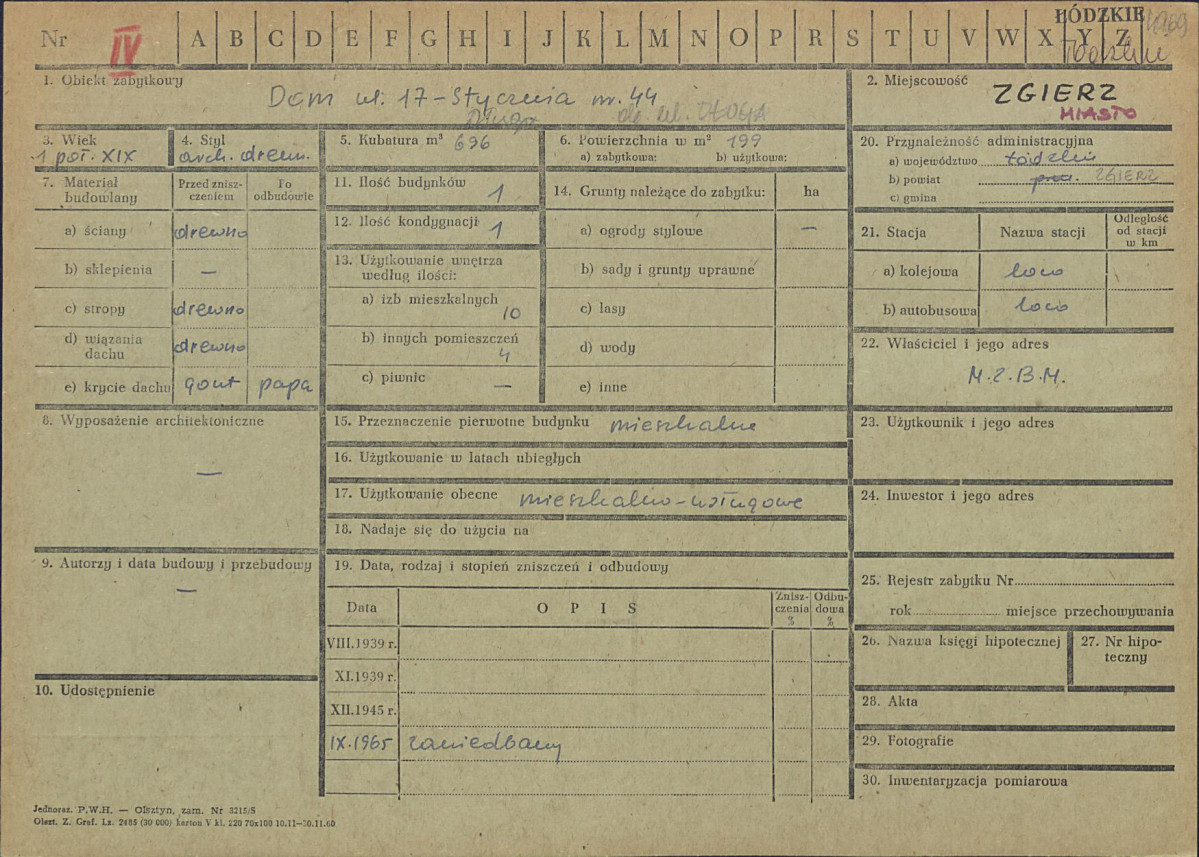 Nr IV A B C D E F G H I J K L M N O P R S T U V W X Y Z
ŁÓDZKIE
1. Obiekt zabytkowy
Dom ul. 17-Stycznia nr. 44
Długa
ob. ul. DŁUGA
2. Miejscowość
ZGIERZ
MIASTO
3. Wiek
1 poł. XIX
4. Styl
arch. drewn.
5. Kubatura m³ 696
6. Powierzchnia w m² 199
a) zabytkowa: b) użytkowa:
7. Materiał budowlany
Przed zniszczeniem
Po odbudowie
a) ściany drewno
b) sklepienia —
c) stropy drewno
d) wiązania dachu drewno
e) krycie dachu gont papa
8. Wyposażenie architektoniczne
—
9. Autorzy i data budowy i przebudowy
—
10. Udostępnienie
11. Ilość budynków 1
12. Ilość kondygnacji 1
13. Użytkowanie wnętrza
według ilości:
a) izb mieszkalnych
10
b) innych pomieszczeń
4
c) piwnic —
14. Grunty należące do zabytku: ha
a) ogrody stylowe —
b) sady i grunty uprawne
c) lasy
d) wody
e) inne
15. Przeznaczenie pierwotne budynku mieszkalne
16. Użytkowanie w latach ubiegłych
17. Użytkowanie obecne mieszkalno-usługowe
18. Nadaje się do użycia na
19. Data, rodzaj i stopień zniszczeń i odbudowy
Data OPIS Zniszczenia % Odbudowa %
VIII.1939 r.
XI.1939 r.
XII.1945 r.
IX.1965 zaniedbany
20. Przynależność administracyjna
a) województwo łódzkie
b) powiat ZGIERZ
c) gmina
21. Stacja Nazwa stacji Odległość od stacji w km
a) kolejowa loco
b) autobusowa loco
22. Właściciel i jego adres
M.Z.B.M.
23. Użytkownik i jego adres
24. Inwestor i jego adres
25. Rejestr zabytku Nr
rok miejsce przechowywania
26. Nazwa księgi hipotecznej
27. Nr hipoteczny
28. Akta
29. Fotografie
30. Inwentaryzacja pomiarowa
Jednoraz. P.W.H. — Olsztyn, zam. Nr 3215/S
Olszt. Z. Graf. Lz. 2485 (30 000) karton V kl. 220 70x100 10.11—30.11.60